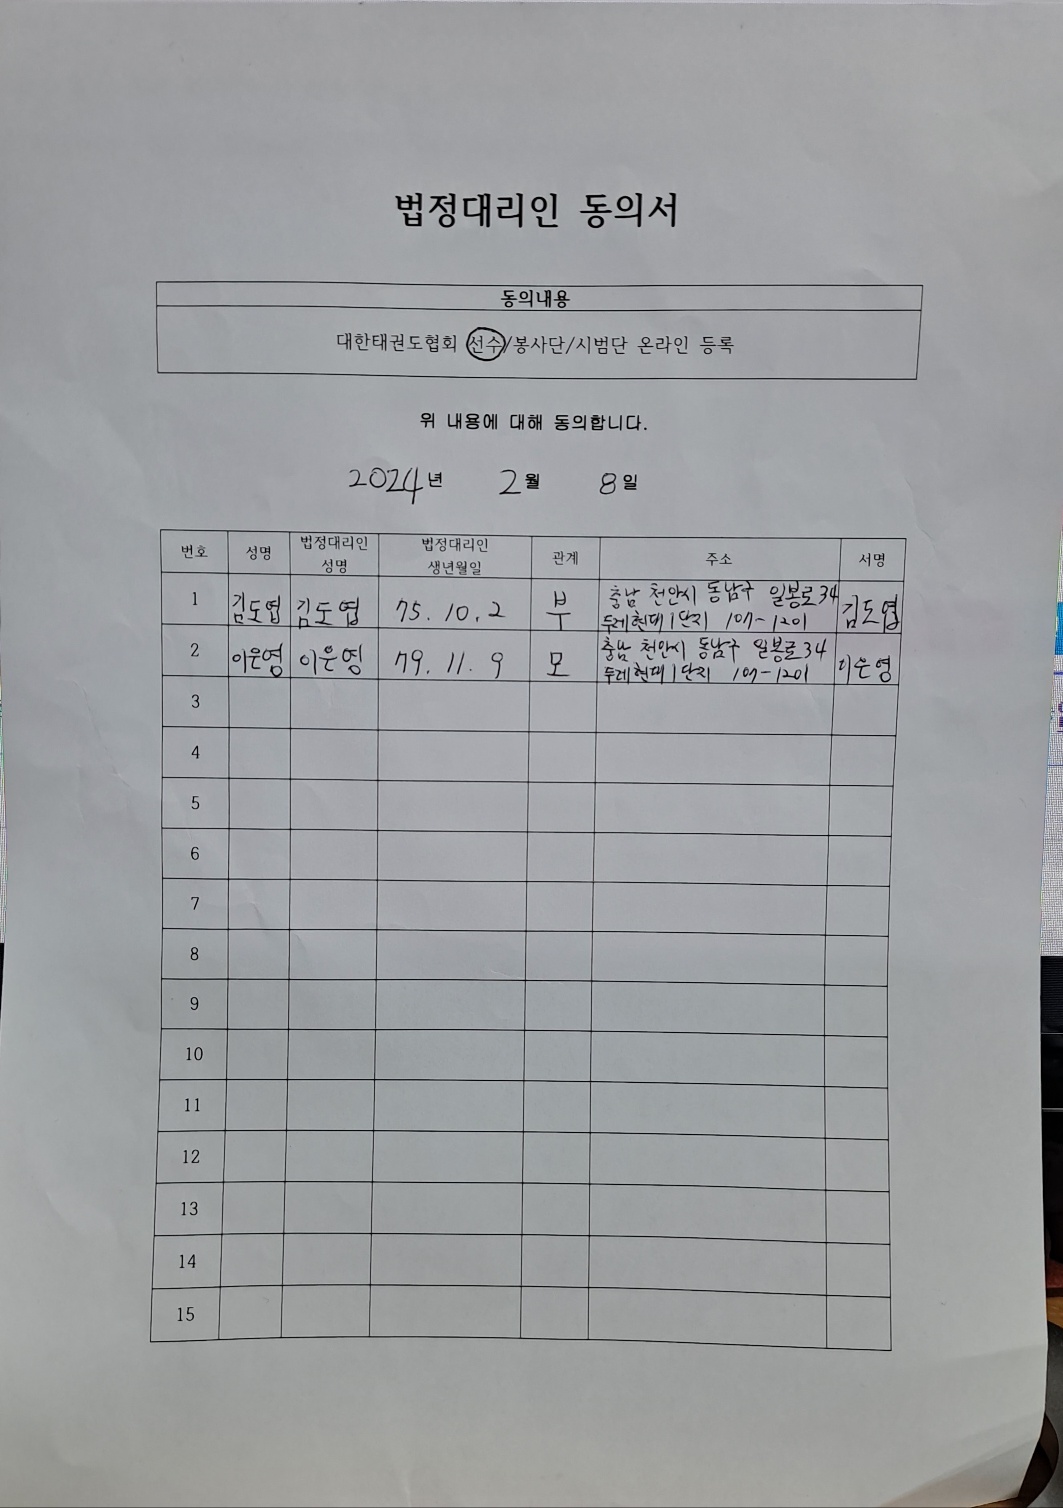 법정대리인 동의서
동의내용
대한태권도협회 선수/봉사단/시범단 온라인 등록
위 내용에 대해 동의합니다.
2024년 2월 8일
번호 성명 법정대리인 성명 법정대리인 생년월일 관계 주소 서명
1 김도엽 김도엽 75. 10. 2 부 충남 천안시 동남구 일봉로 34 김도엽
두레현대 1단지 107-1201
2 이은영 이은영 79. 11. 9 모 충남 천안시 동남구 일봉로 34 이은영
두레현대 1단지 107-1201
3
4
5
6
7
8
9
10
11
12
13
14
15